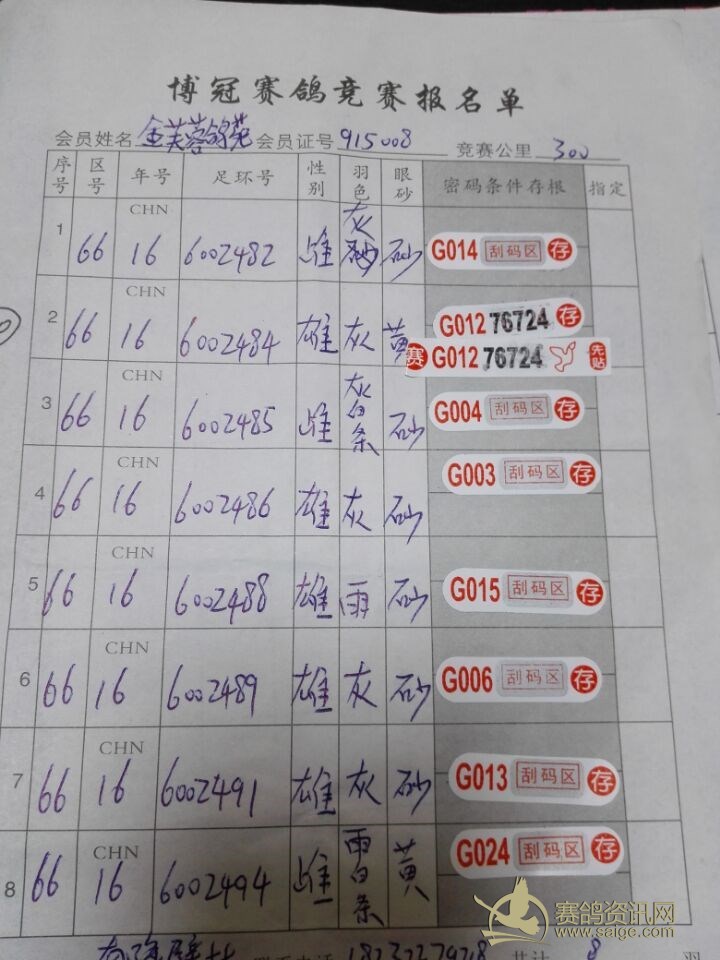 博冠赛鸽竞赛报名单
会员姓名 金芙蓉鸽苑 会员证号 915008 竞赛公里 300
序号 区号 年号 足环号 性别 羽色 眼砂 密码条件存根 指定
1 66 CHN 16 6002482 雌 灰 砂 G014 刮码区 存
2 66 CHN 16 6002484 雄 灰 黄 G012 76724 存
赛 G012 76724 先贴
3 66 CHN 16 6002485 雌 灰白条 砂 G004 刮码区 存
4 66 CHN 16 6002486 雄 灰 砂 G003 刮码区 存
5 66 CHN 16 6002488 雄 雨 砂 G015 刮码区 存
6 66 CHN 16 6002489 雄 灰 砂 G006 刮码区 存
7 66 CHN 16 6002491 雄 灰 砂 G013 刮码区 存
8 66 CHN 16 6002494 雌 雨白条 黄 G024 刮码区 存
共计 8 羽
赛鸽资讯网
www.saige.com